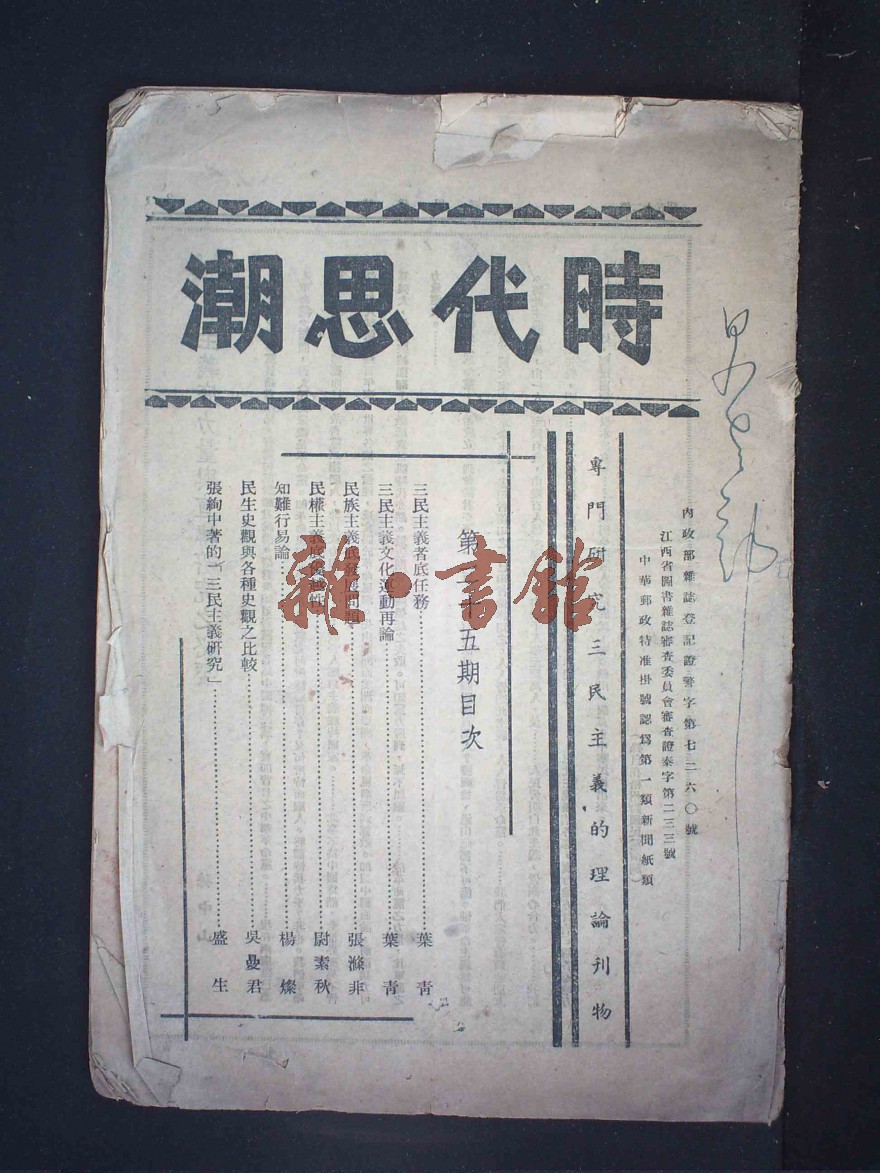 時代思潮
內政部雜誌登記證警字第七二六〇號
江西省圖書雜誌審查委員會審查證泰字第二三三號
中華郵政特准掛號認爲第一類新聞紙類
專門研究三民主義的理論刊物
第二十五期目次
三民主義者底任務……葉青
三民主義文化運動再論……葉青
民族主義底……張滌非
民權主義底……尉素秋
知難行易論……楊燦
民生史觀與各種史觀之比較……吳曼君
張絢中著的「三民主義研究」……盛生
雜·書館